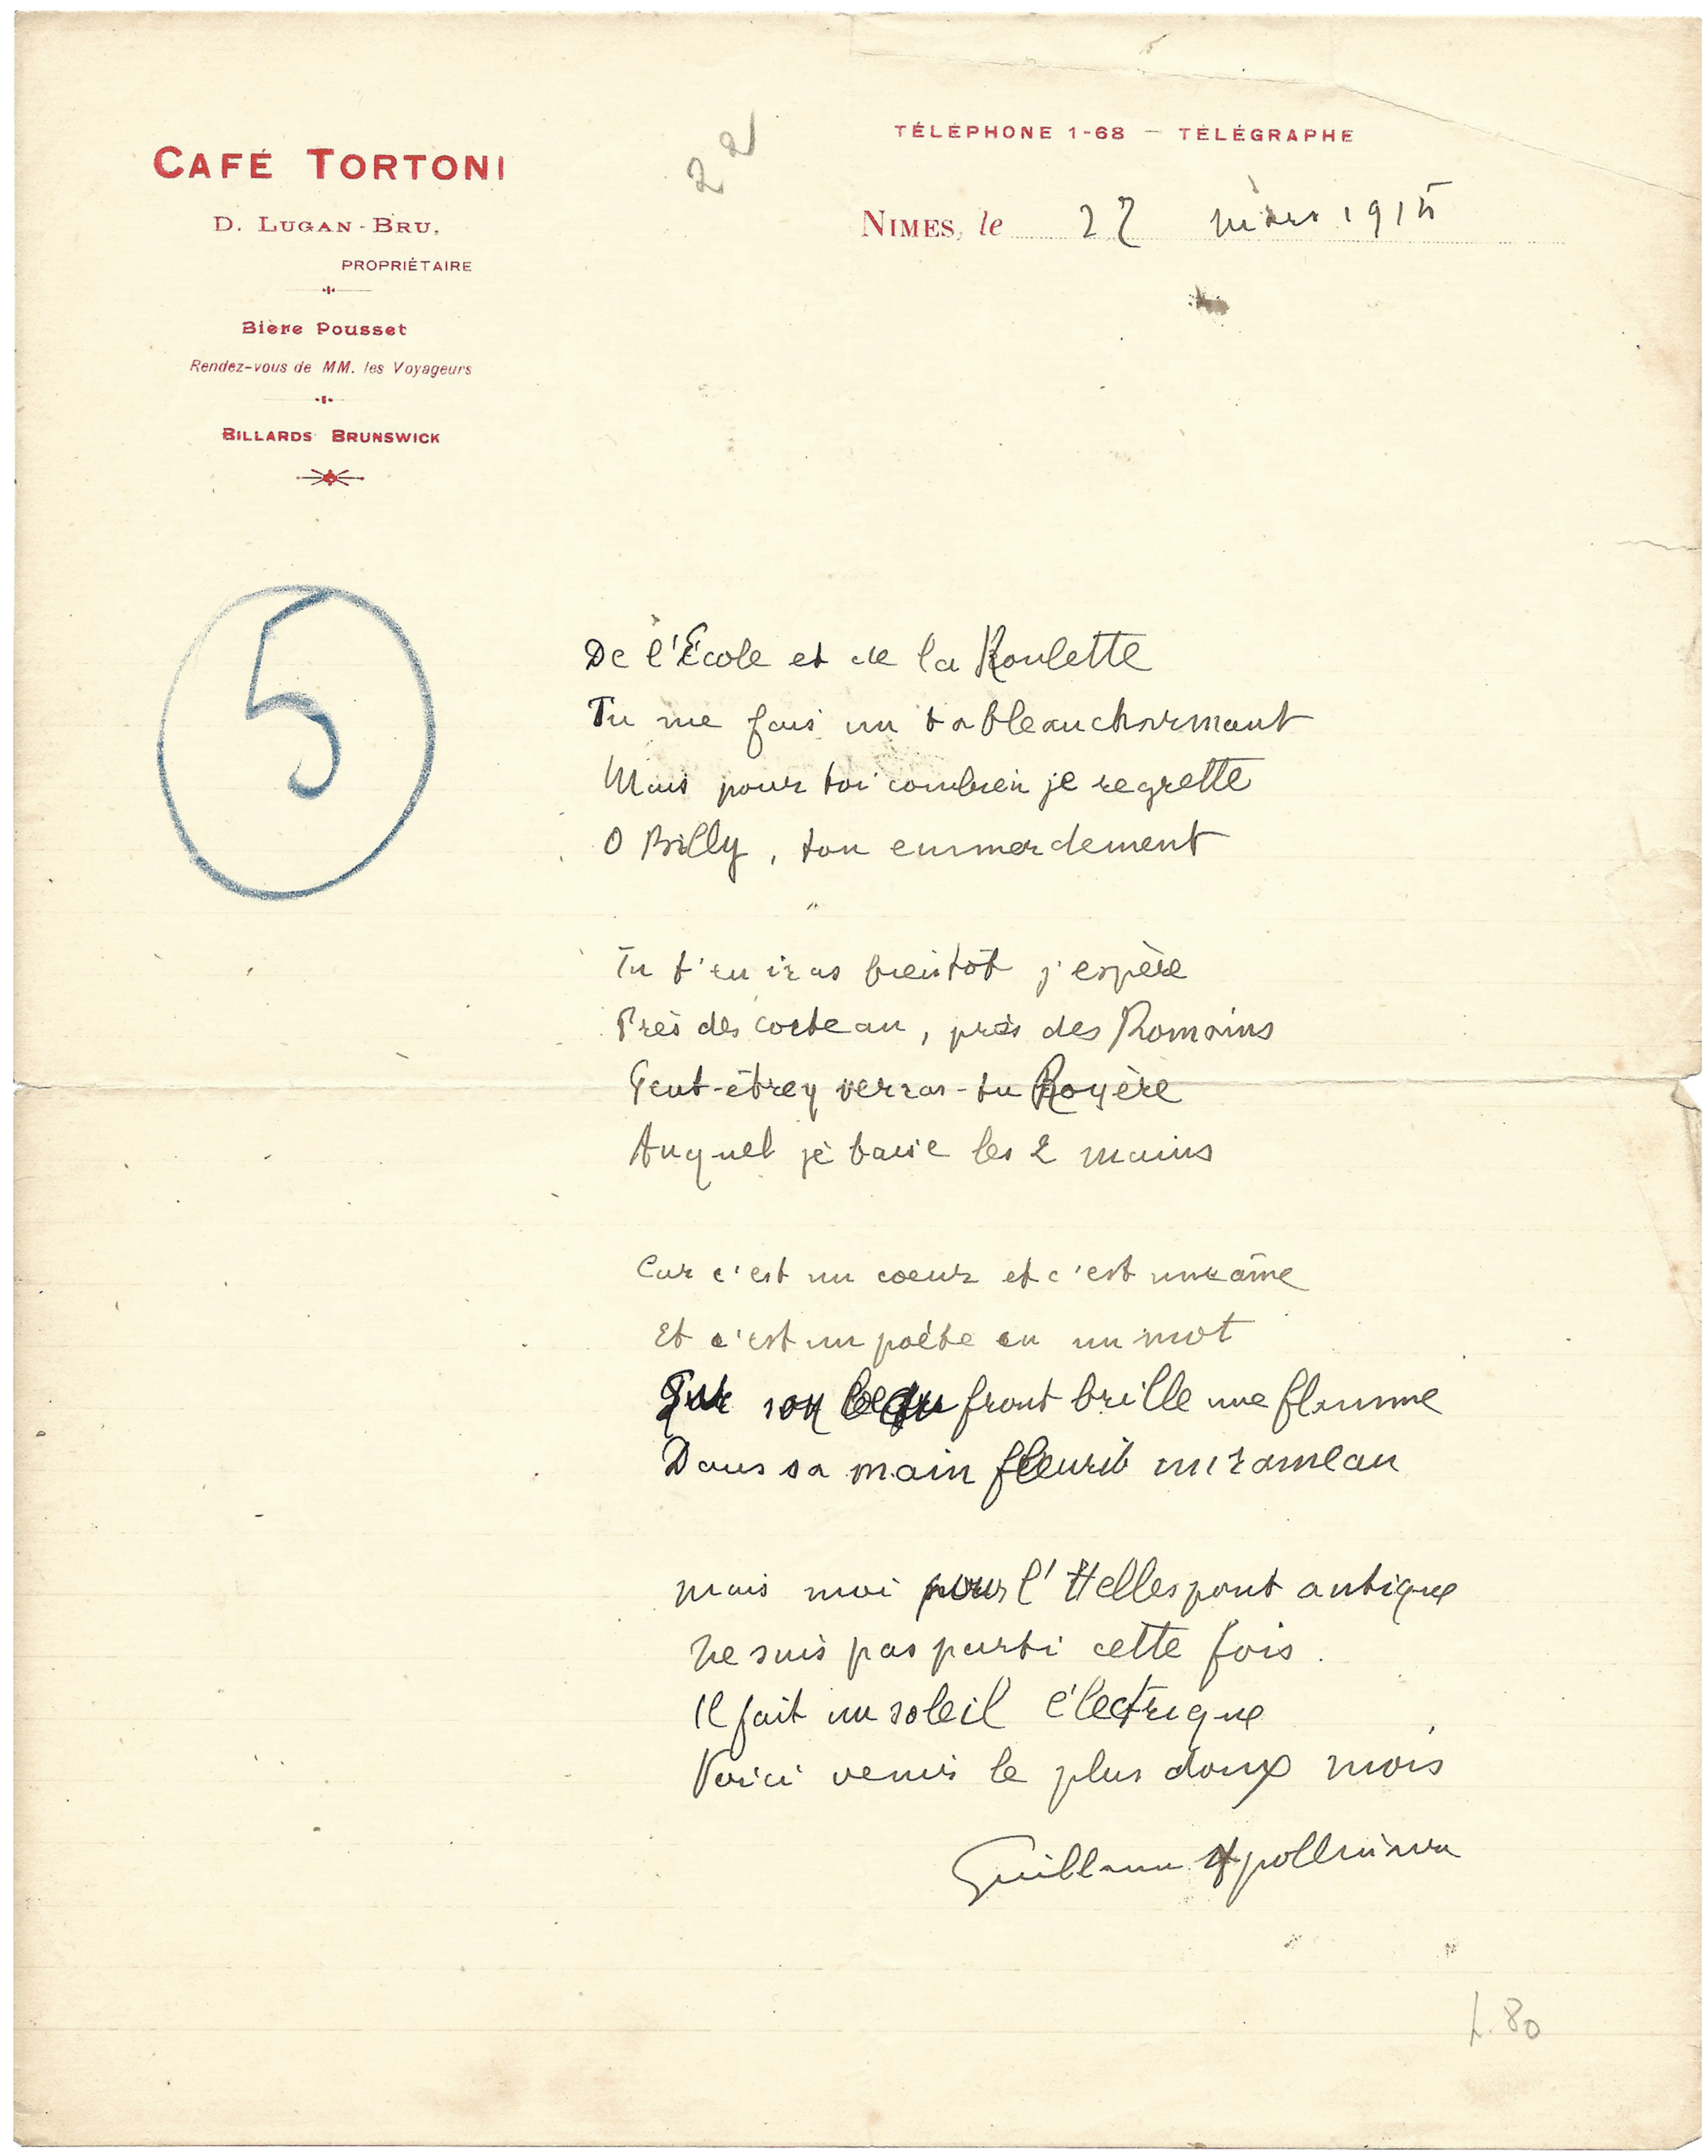 22
CAFÉ TORTONI
D. LUGAN-BRU,
PROPRIÉTAIRE
Bière Pousset
Rendez-vous de MM. les Voyageurs
BILLARDS BRUNSWICK
TÉLÉPHONE 1-68 — TÉLÉGRAPHE
NIMES, le 22 mars 1915
5
De l'École et de la Roulette
Tu me fais un tableau charmant
Mais pour toi combien je regrette
O Billy, ton emmerdement
"
Tu t'en iras bientôt j'espère
Près des coteau, près des Romains
Peut-être y verras-tu Royère
Auquel je baise les 2 mains
Car c'est un coeur et c'est une âme
Et c'est un poète en un mot
Sur son beau front brille une flamme
Dans sa main fleurit un rameau
Mais moi pour l'Hellespont antique
Ne suis pas parti cette fois.
Il fait un soleil électrique
Voici venir le plus doux mois
Guillaume Apollinaire
L. 80